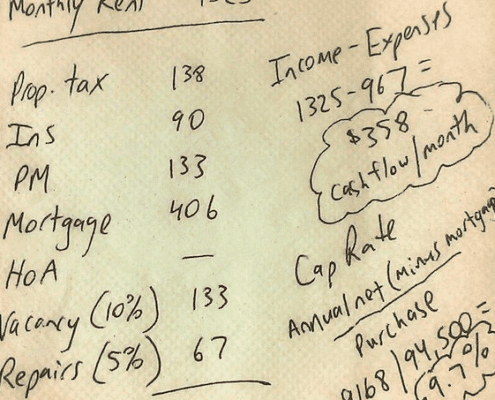 Monthly Rent 1325
Prop. tax 138
Ins 90
PM 133
Mortgage 406
HoA —
Vacancy (10%) 133
Repairs (5%) 67
Income - Expenses
1325-967 =
$358
cashflow/month
Cap Rate
Annual net (minus mortgage
Purchase
9168/94,500 =
9.7%